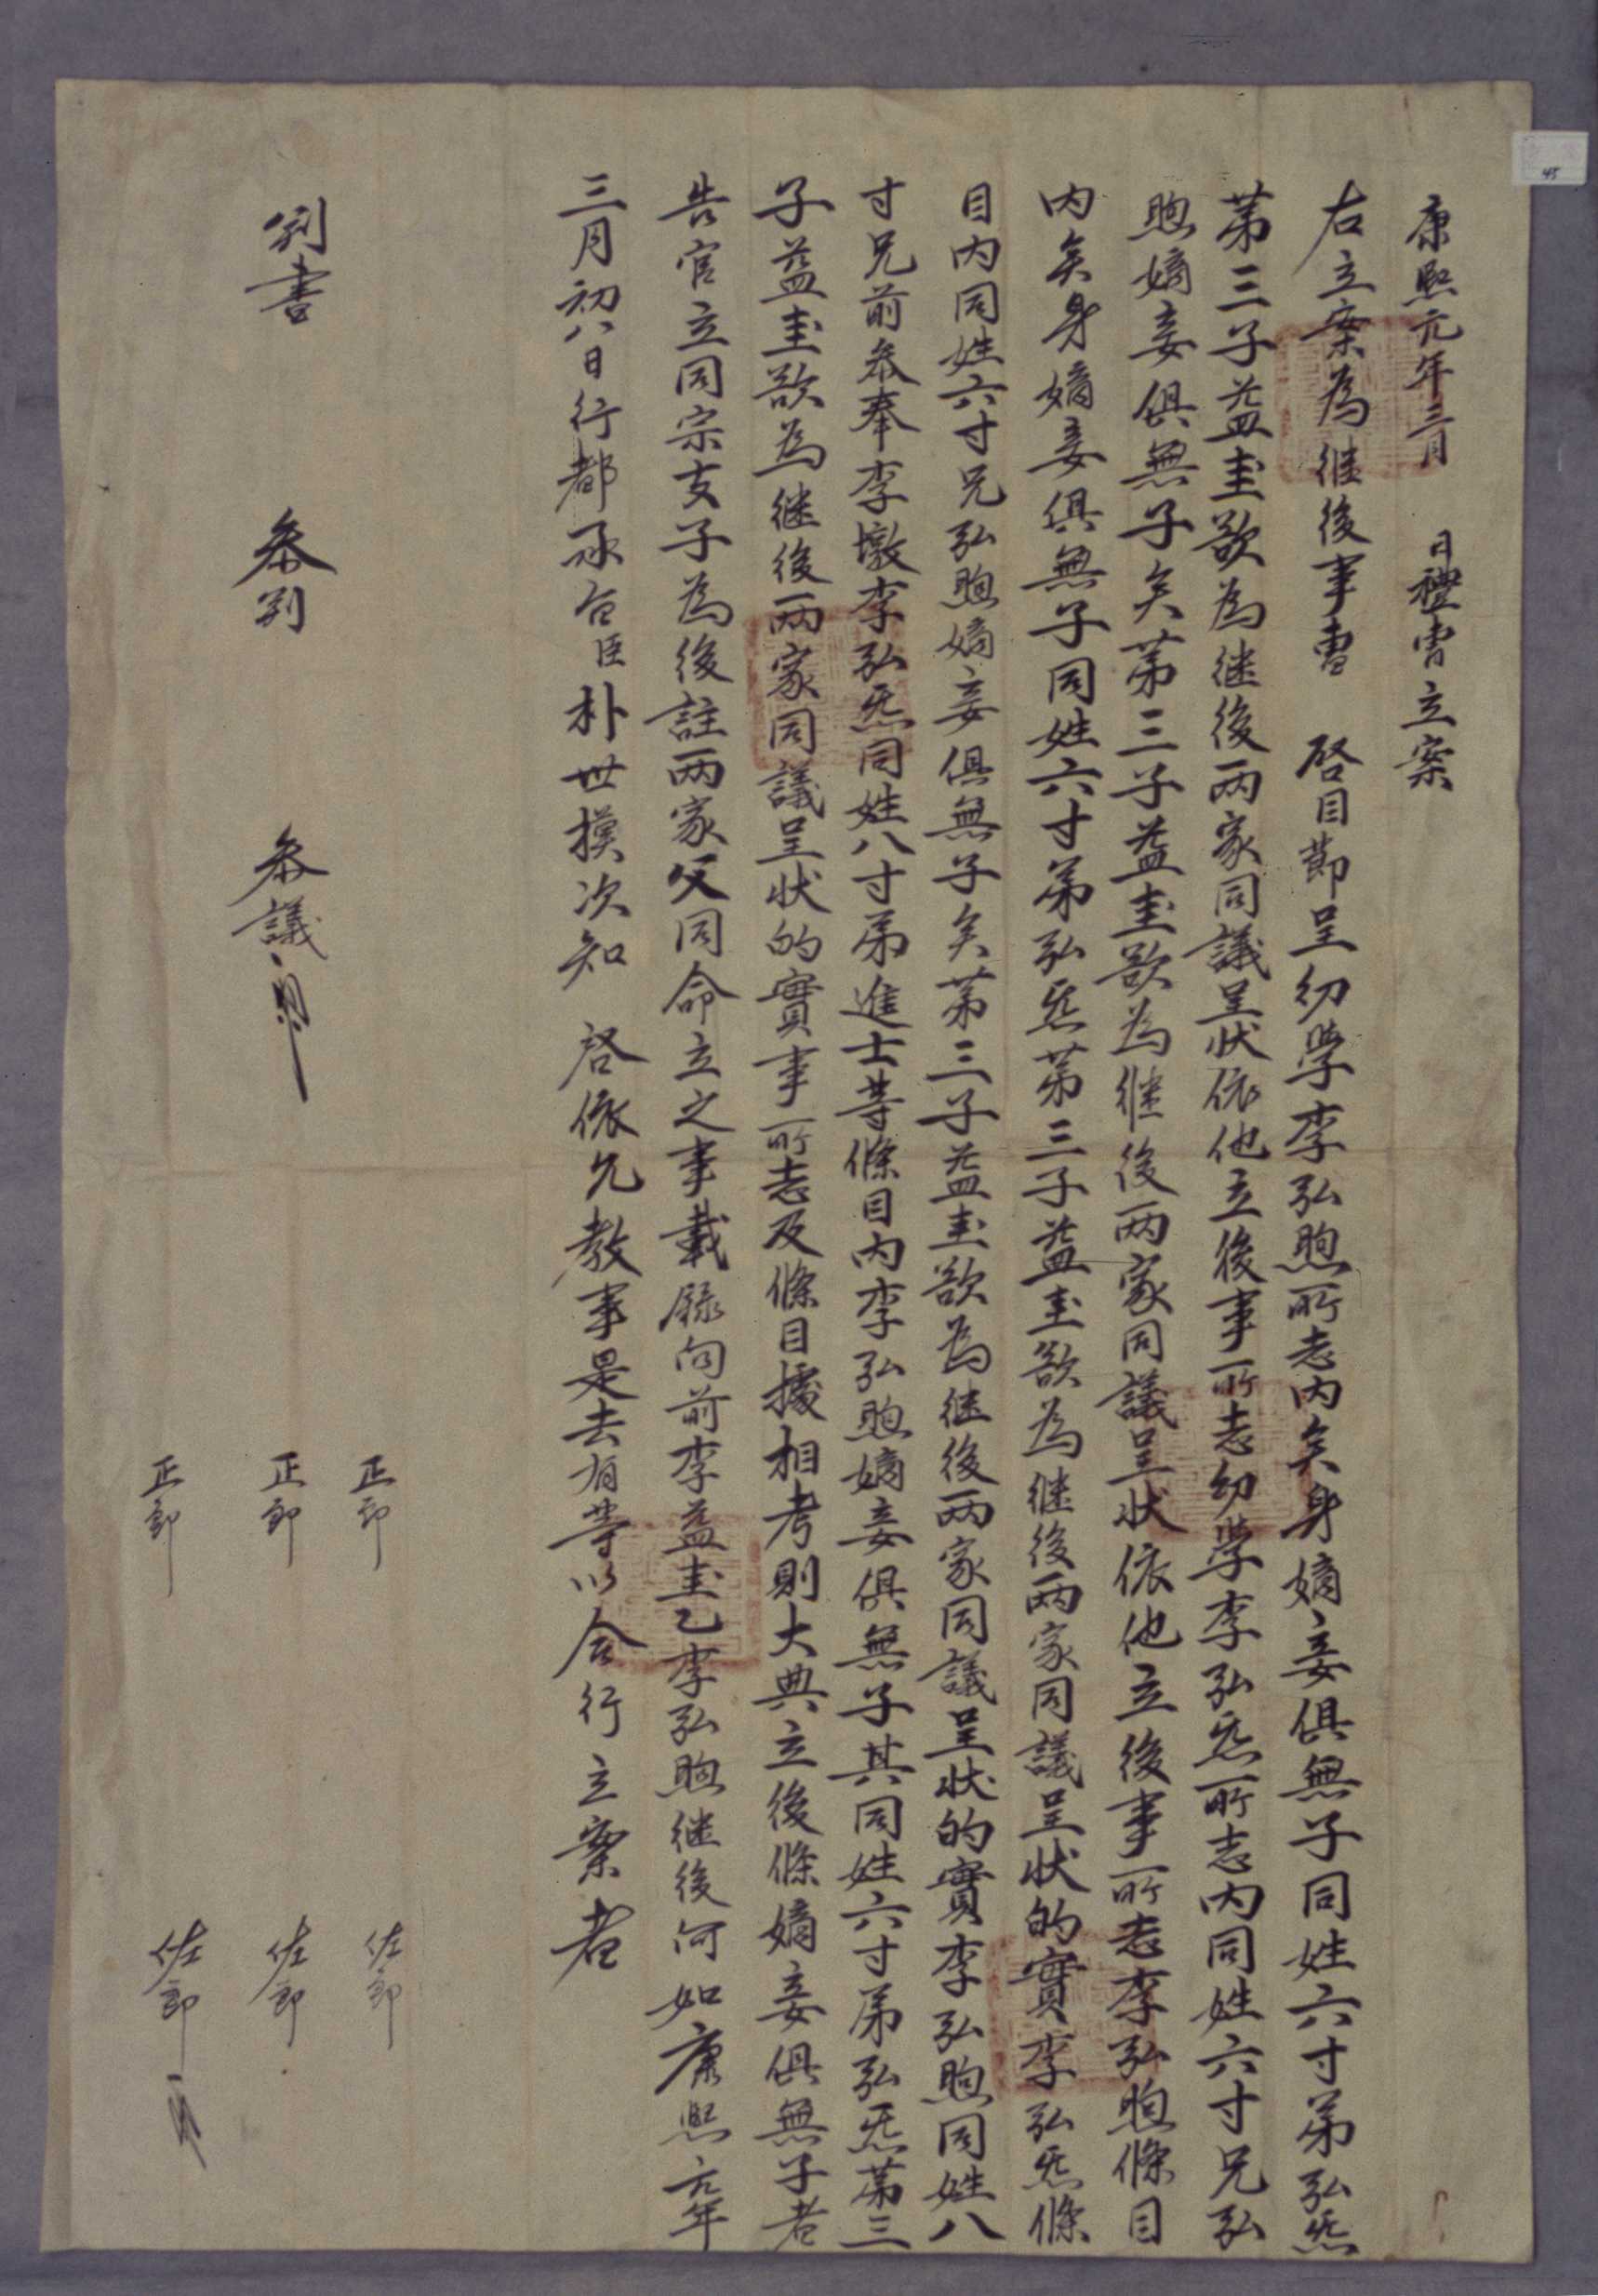 康熙元年三月 日禮曹立案
右立案爲継後事曹 啓目節呈幼學李弘煦所志內矣身嫡妾俱無子同姓六寸弟弘炁
第三子益圭欲爲継後兩家同議呈狀依他立後事所志幼學李弘炁所志內同姓六寸兄弘
煦嫡妾俱無子矣第三子益圭欲爲継後兩家同議呈狀依他立後事所志李弘煦條目
內矣身嫡妾俱無子同姓六寸弟弘炁第三子益圭欲爲継後兩家同議呈狀的實李弘炁條
目內同姓六寸兄弘煦嫡妾俱無子矣第三子益圭欲爲継後兩家同議呈狀的實李弘煦同姓八
寸兄前參奉李墩李弘炁同姓八寸弟進士等條目內李弘煦嫡妾俱無子其同姓六寸弟弘炁第三
子益圭欲爲継後兩家同議呈狀的實事所志及條目據相考則大典立後條嫡妾俱無子者
告官立同宗支子爲後註兩家父同命立之事載錄向前李益圭乙李弘煦継後何如康熙元年
三月初八日行都承旨臣朴世模次知 啓依允教事是去有等以合行立案者
判書 參判 參議
正郎 佐郎
正郎 佐郎
正郎 佐郎
45